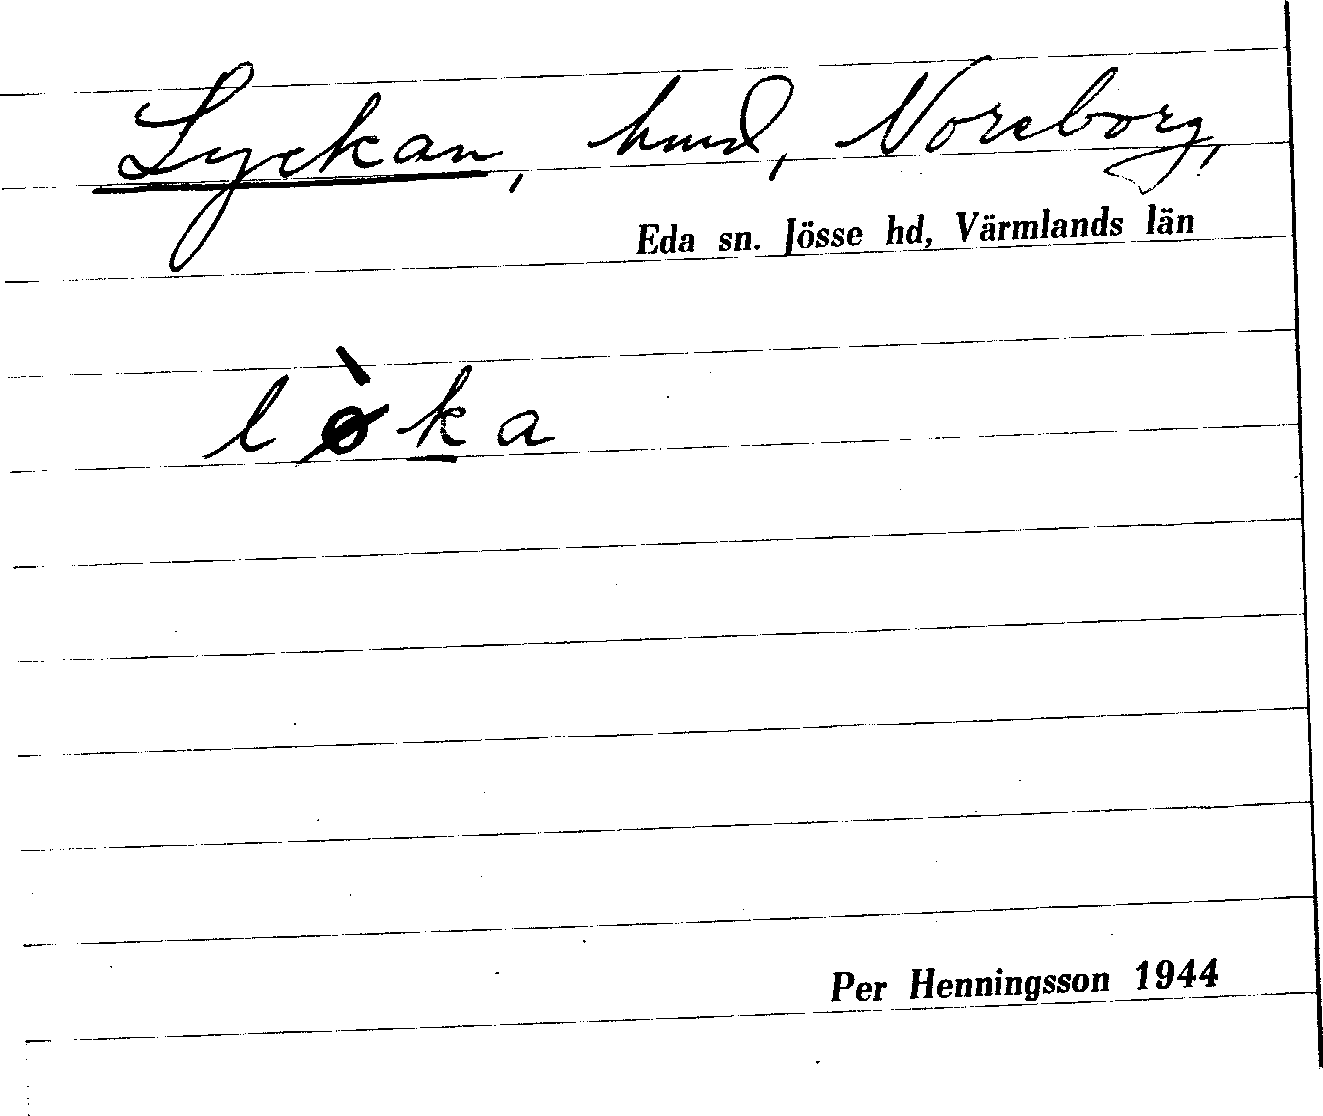 Lyckan, hmd, Noreborg,
Eda sn. Jösse hd, Värmlands län
lø̀ka
Per Henningsson 1944